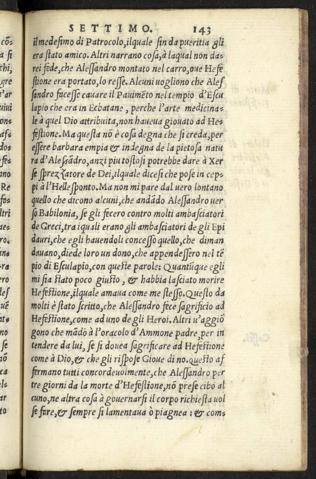 SETTIMO. 143
il medesimo di Patrocolo, ilquale sin da pueritia gli
era stato amico. Altri narrano cosa, à laqual non da-
rei fede, che Alessandro montato nel carro, oue Hefe
stione era portato, lo resse. Alcuni uogliono che Ales
sandro facesse cauare il Pauimẽto nel tempio d'Escu
lapio che era in Ecbatane, perche l'arte medicina-
le à quel Dio attribuita, non haueua giouato ad Hes
festione. Ma questa nõ è cosa degna che si creda, per
essere barbara empia & indegna de la pietosa natu
ra d'Alesãdro, anzi piu tosto si potrebbe dare à Xer
se sprezzatore de Dei, ilquale dicesi che pose in cep-
pi à l'Hellesponto. Ma non mi pare dal uero lontano
quello che dicono alcuni, che andãdo Alessandro uer
so Babilonia, se gli fecero contro molti ambasciatori
de Greci, tra iquali erano gli ambasciatori de gli Epi
dauri, che egli hauendoli concesso quello, che diman
dauano, diede loro un dono, che appendessero nel tẽ
pio di Esculapio, con queste parole: Quantũque egli
mi sia stato poco giusto, & habbia lasciato morire
Hefestione, ilquale amaua come me stesso. Questo da
molti è stato scritto, che Alessandro fece sagrificio ad
Hefestione, come ad uno de gli Heroi. Altri u'aggiõ
gono che mãdò à l'oracolo d'Ammone padre, per in
tendere da lui, se si douea sagrificare ad Hefestione
come à Dio, & che gli rispose Gioue di no. questo af
firmano tutti concordeuolmente, che Alessandro per
tre giorni da la morte d'Hefestione, nõ prese cibo al
cuno, ne altra cosa à gouernarsi il corpo richiesta uol
se fare, & sempre si lamentaua ò piagnea: & com-